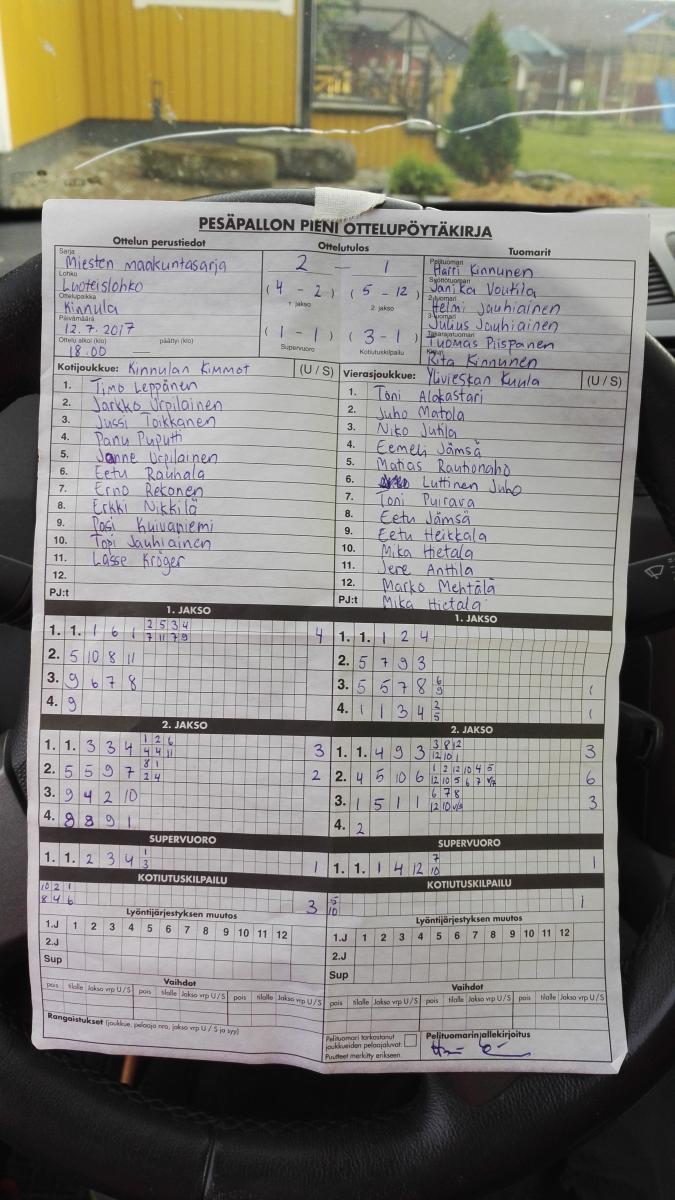 PESÄPALLON PIENI OTTELUPÖYTÄKIRJA
Ottelun perustiedot
Ottelutulos
Tuomarit
Sarja
Miesten maakuntasarja
Lohko
Luoteislohko
Ottelupaikka
Kinnula
Päivämäärä
12.7.2017
Ottelu alkoi (klo) päättyi (klo)
18:00 —
2 — 1
(4 - 2) (5 - 12)
1. jakso 2. jakso
(1 - 1) (3 - 1)
Supervuoro Kotiutuskilpailu
Pelituomari
Harri Kinnunen
Syöttötuomari
Janika Voutila
2-tuomari
Helmi Jauhiainen
3-tuomari
Julius Jauhiainen
Takarajatuomari
Tuomas Piispanen
Kirjuri
Rita Kinnunen
Kotijoukkue: Kinnulan Kimmot (U / S)
1. Timo Leppänen
2. Jarkko Urpilainen
3. Jussi Toikkanen
4. Panu Puputti
5. Janne Urpilainen
6. Eetu Rauhala
7. Erno Rekonen
8. Erkki Nikkilä
9. Pasi Kuivaniemi
10. Topi Jauhiainen
11. Lasse Kröger
12.
PJ:t
Vierasjoukkue: Ylivieskan Kuula (U / S)
1. Toni Alakastari
2. Juho Matola
3. Niko Jutila
4. Eemeli Jämsä
5. Matias Rautionaho
6. Luttinen Juho
7. Toni Puirava
8. Eetu Jämsä
9. Eetu Heikkala
10. Mika Hietala
11. Jere Anttila
12. Marko Mehtälä
PJ:t Mika Hietala
1. JAKSO
1. 1. 1 6 1 2 5 3 4 4
7 11 7 9
2. 5 10 8 11
3. 9 6 7 8
4. 9
2. JAKSO
1. 1. 3 3 4 1 2 6 3
4 4 11
2. 5 5 9 7 8 1 2
2 4
3. 9 4 2 10
4. 8 8 9 1
SUPERVUORO
1. 1. 2 3 4 1 1
3
KOTIUTUSKILPAILU
10 2 1 3
8 4 6
1. JAKSO
1. 1. 1 2 4
2. 5 7 9 3
3. 5 5 7 8 6 1
9
4. 1 1 3 4 2 1
5
2. JAKSO
1. 1. 4 9 3 3 8 12 3
12 10 1
2. 4 5 10 6 1 2 12 10 4 5 6
12 10 5 6 7
3. 1 5 1 1 6 7 8 3
12 10
4. 2
SUPERVUORO
1. 1. 1 4 12 7 1
10
KOTIUTUSKILPAILU
5 1
10
Lyöntijärjestyksen muutos
1.J 1 2 3 4 5 6 7 8 9 10 11 12
2.J
Sup
Vaihdot
pois tilalle Jakso vrp U / S pois tilalle Jakso vrp U / S pois tilalle Jakso vrp U / S
Rangaistukset (joukkue, pelaaja nro, jakso vrp U / S ja syy)
Lyöntijärjestyksen muutos
1.J 1 2 3 4 5 6 7 8 9 10 11 12
2.J
Sup
Vaihdot
pois tilalle Jakso vrp U / S pois tilalle Jakso vrp U / S pois tilalle Jakso vrp U / S
Pelituomari tarkastanut
joukkueiden pelaajaluvat.
Puutteet merkitty erikseen.
Pelituomarin allekirjoitus